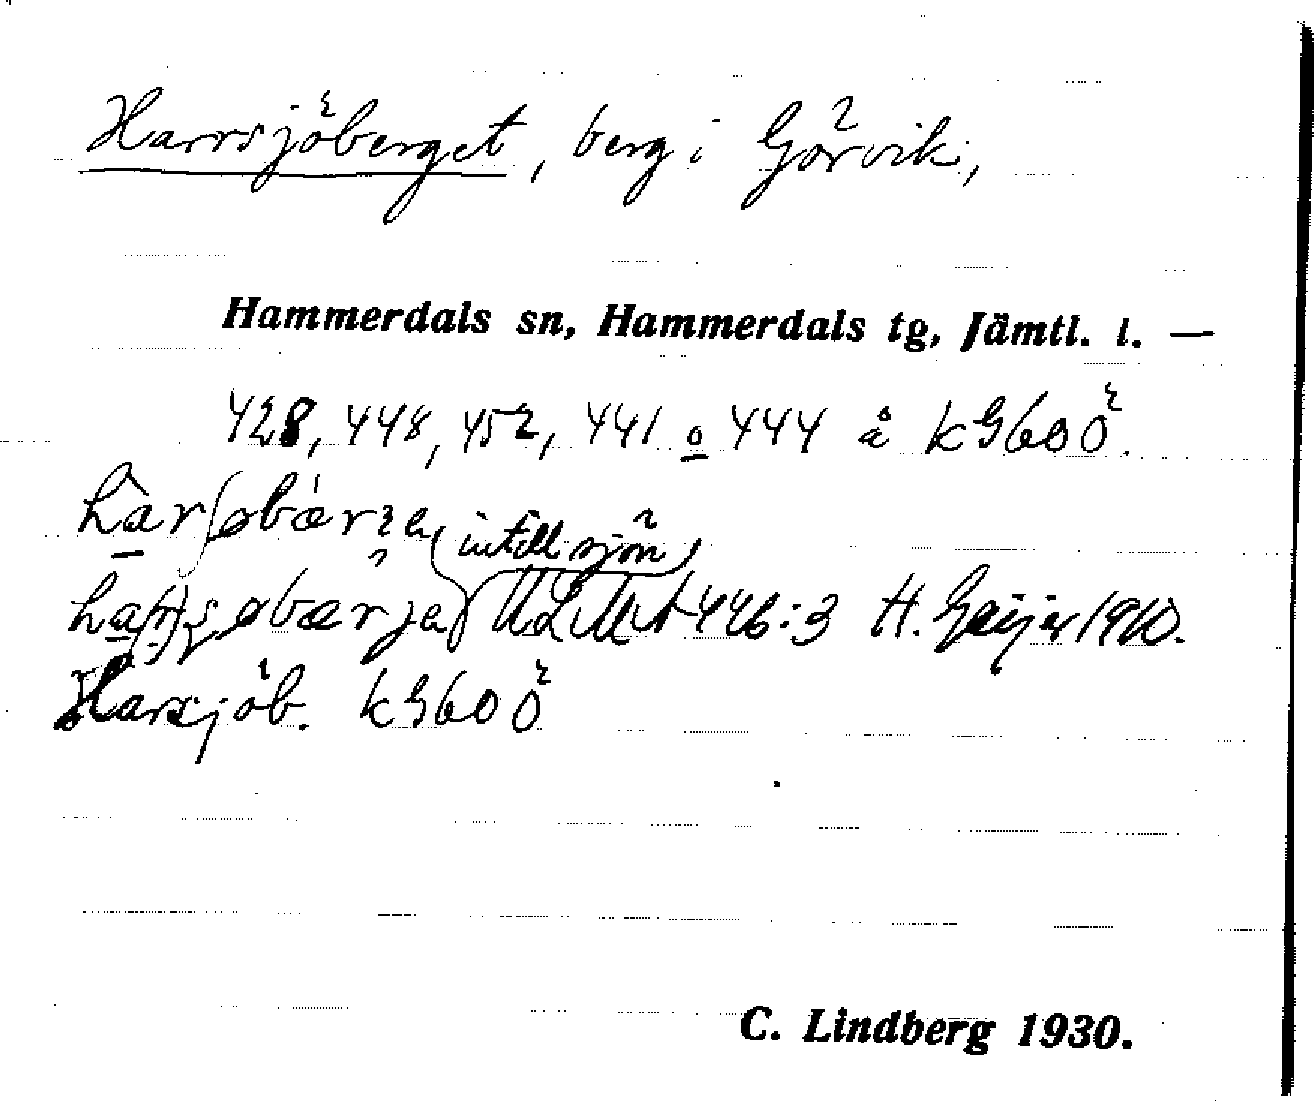 Harrsjöberget, berg i Görvik,
Hammerdals sn, Hammerdals tg, Jämtl. l. —
428, 448, 452, 441 o 444 å kG60Ö.
(intill sjön)
446:3 H. Geijer 1910.
Harsjöb. kG60Ö
C. Lindberg 1930.